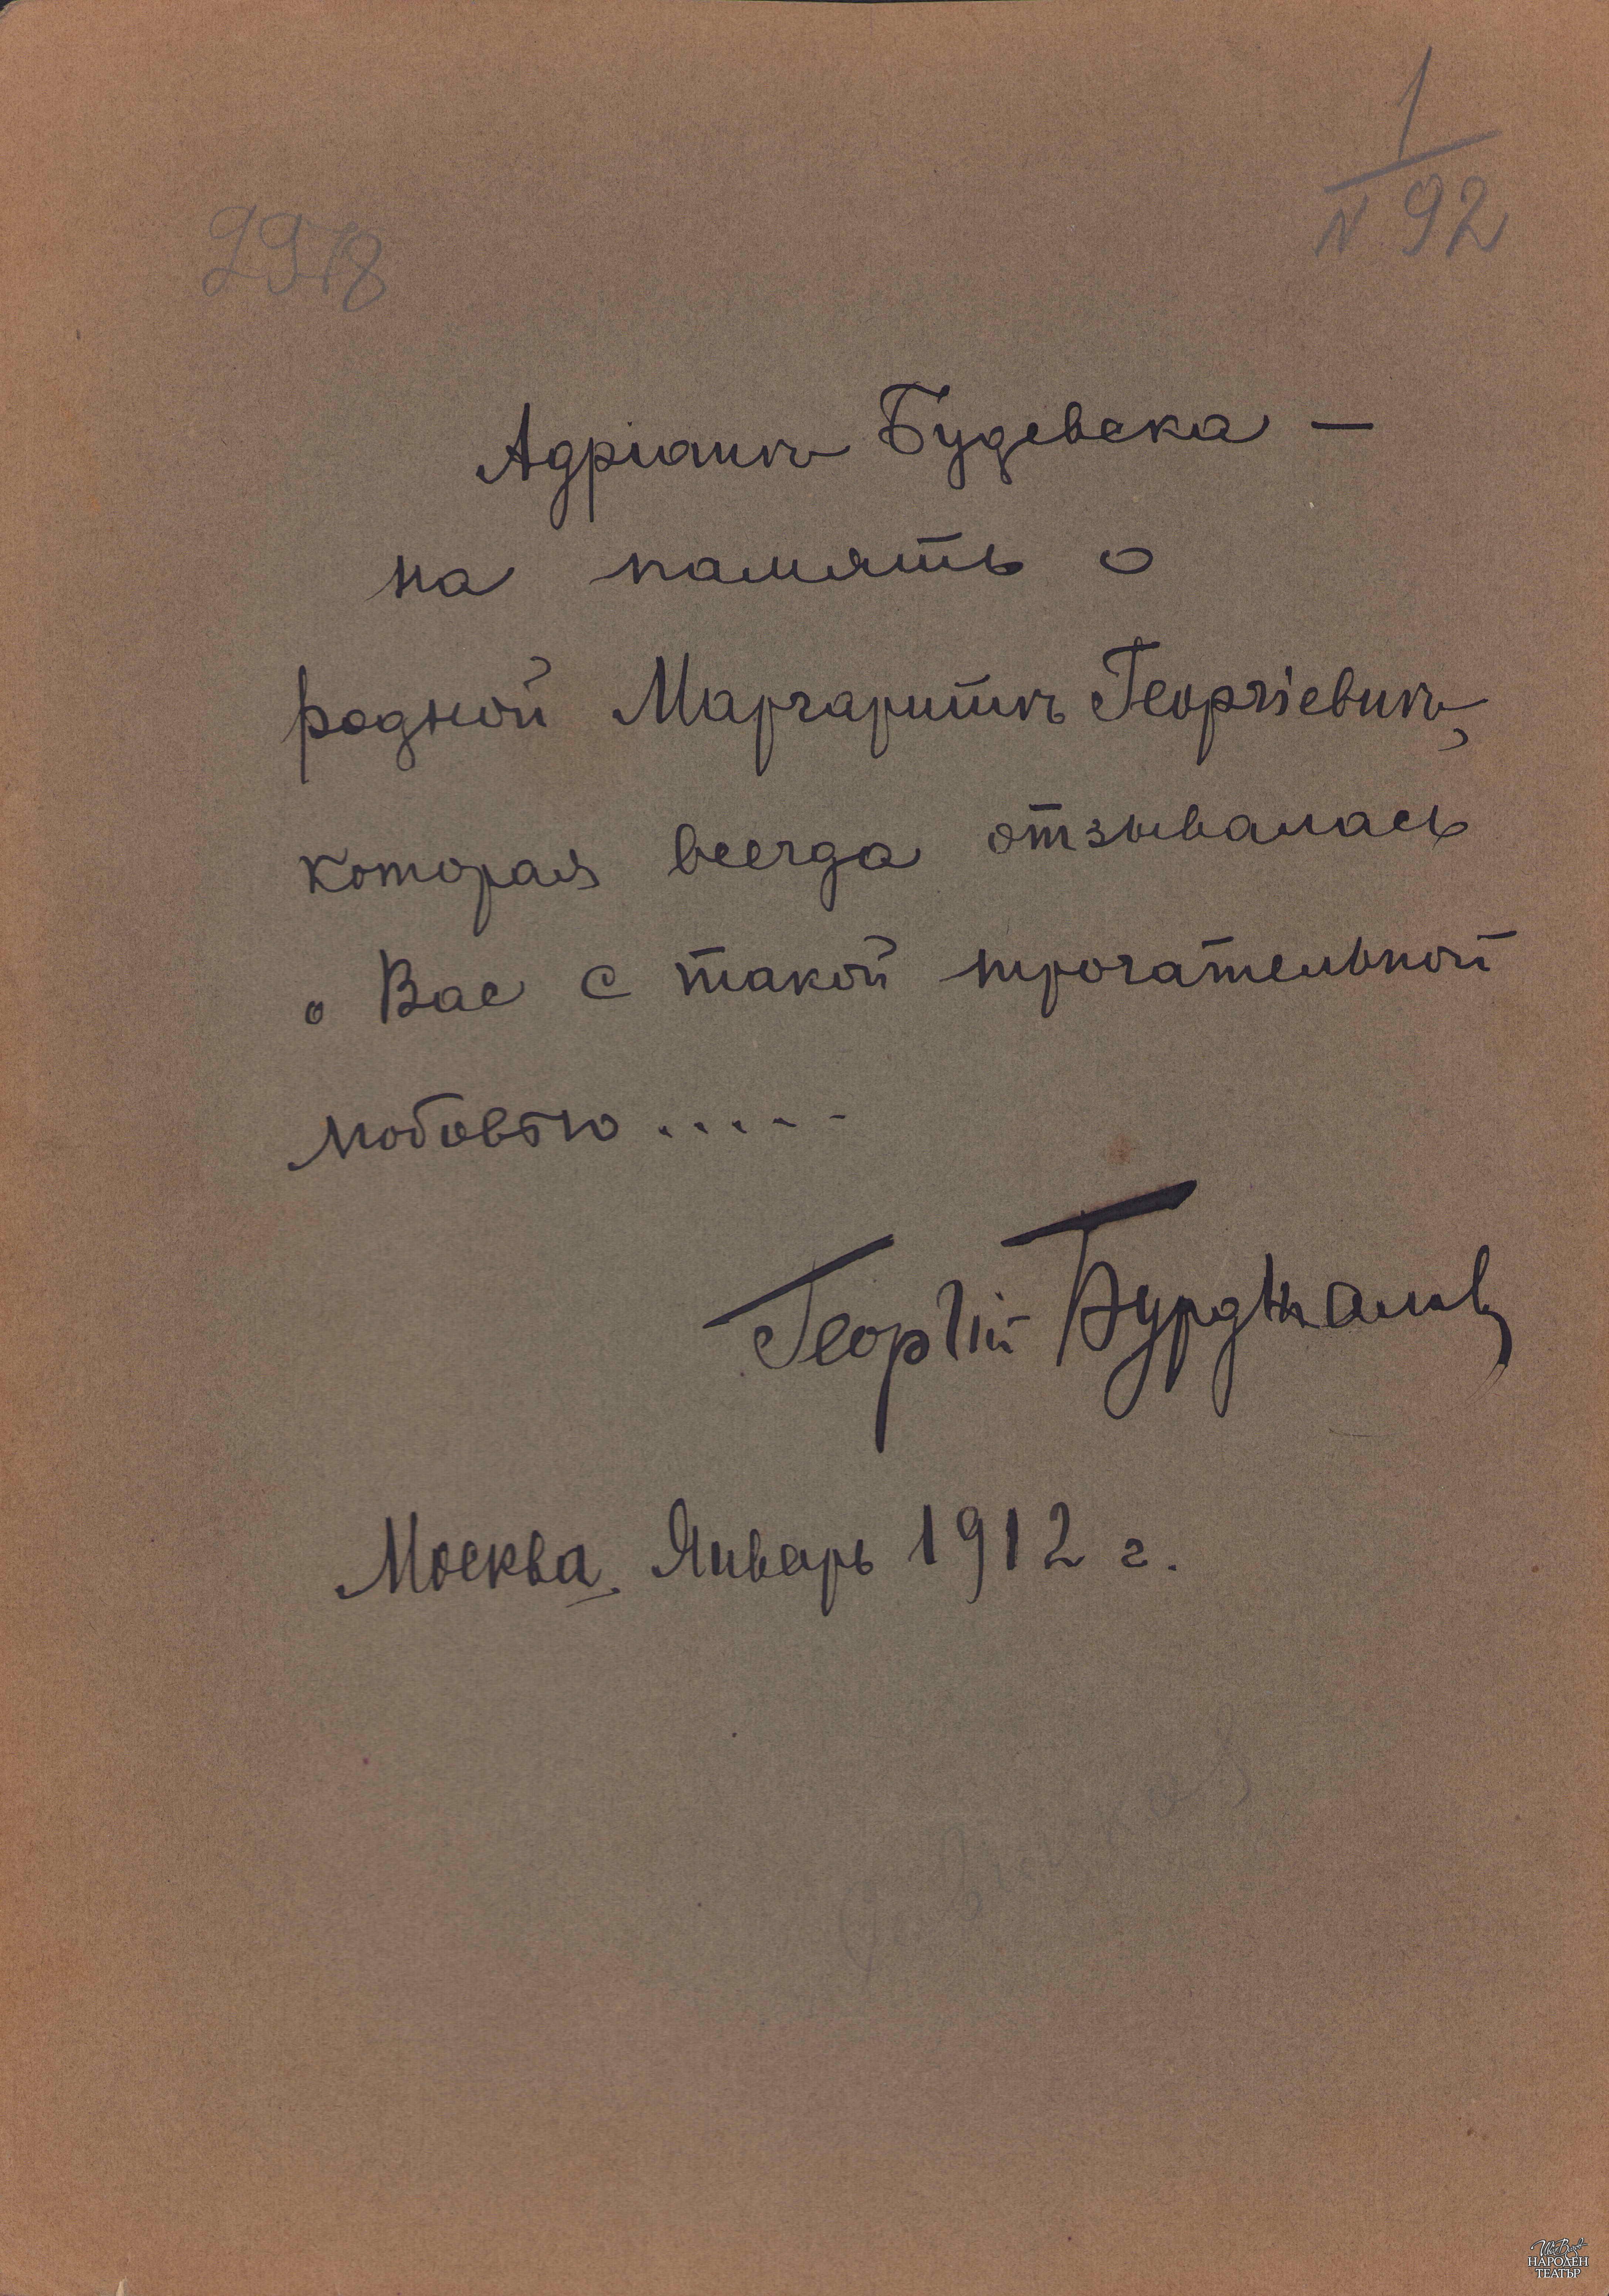 1
N 92
2978
Адріанѣ Будевска —
на память о
родной Маргаритѣ Георгіевнѣ,
которая всегда отзывалась
о Вас с такой трогательной
любовью......
Георгій Бурджалов
Москва. Январь 1912 г.
НАРОДЕН
ТЕАТЪР